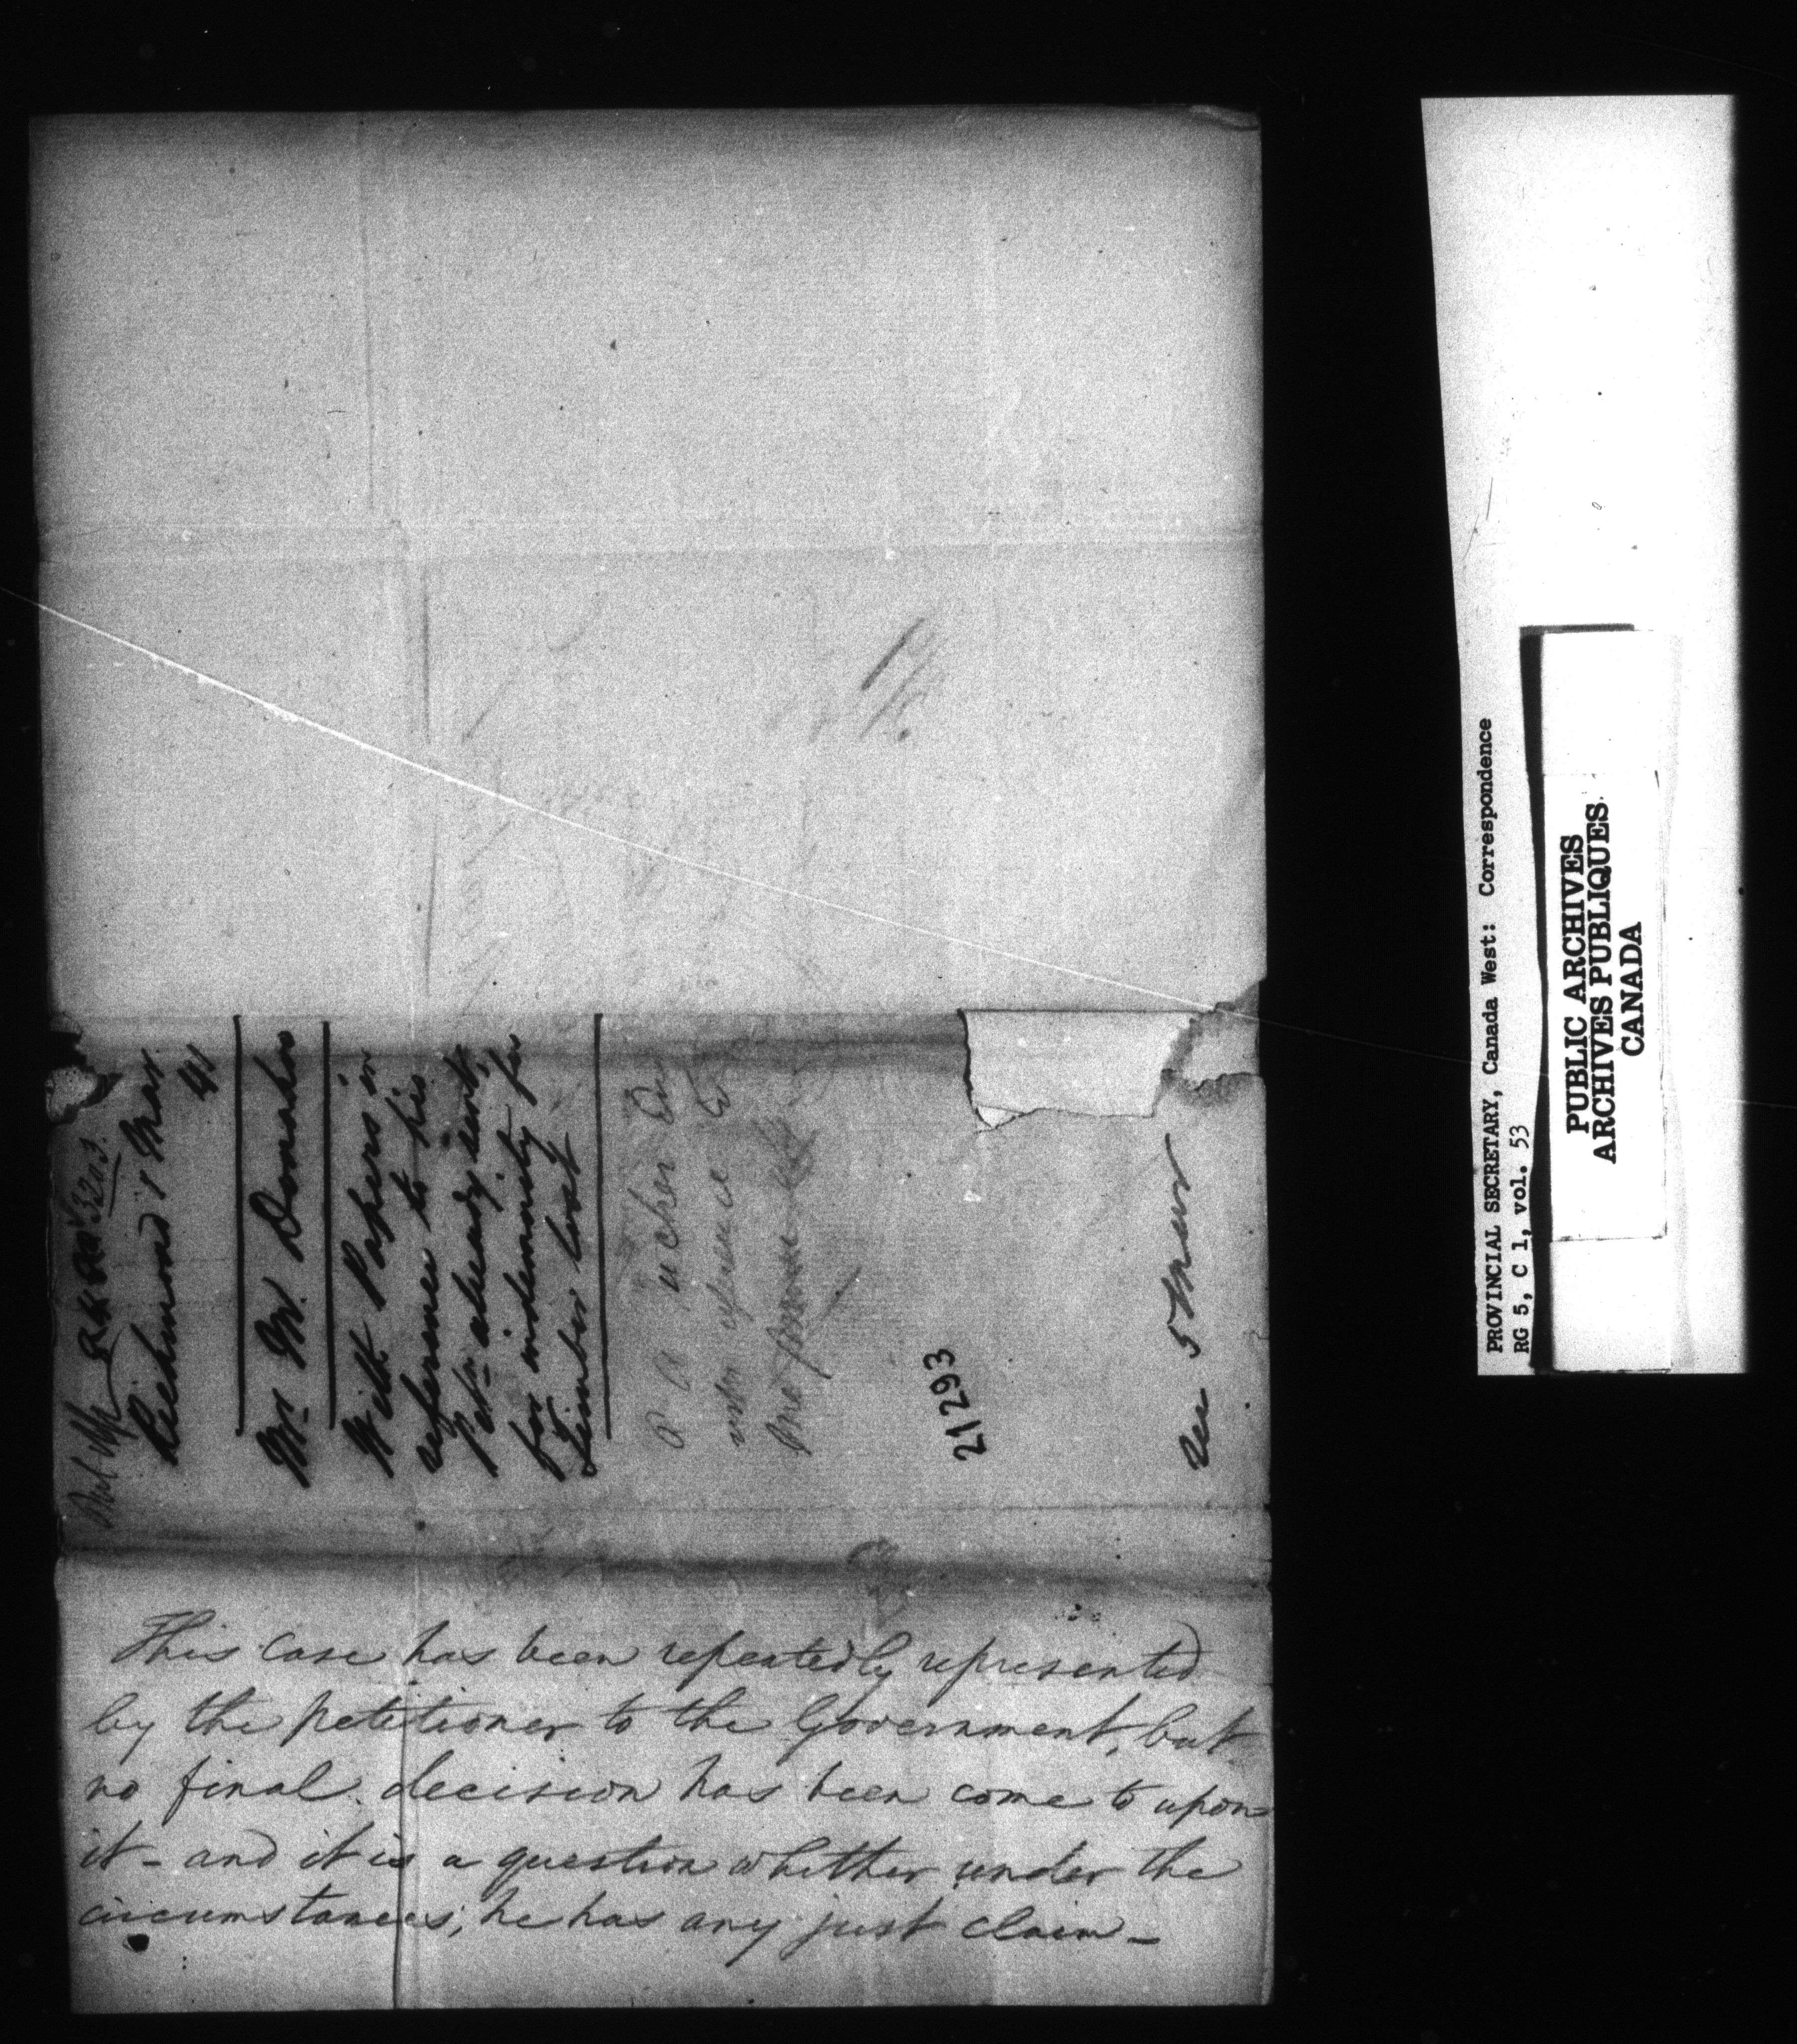 Richmond 1 Mar
41
Mr. M. Donnaho
With Papers in
reference to his
Petn. already sent,
for indemnity for
Timber lost
with reference
21293
5 Mar
This case has been repeatedly represented
by the petitioner to the Government, but
no final decision has been come to upon
it - and it is a question whether under the
circumstances, he has any just claim -
PROVINCIAL SECRETARY, Canada West: Correspondence
RG 5, C 1, vol. 53
PUBLIC ARCHIVES
ARCHIVES PUBLIQUES
CANADA